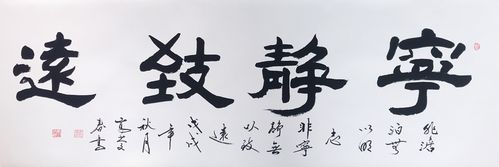 寧靜致遠
非澹
泊無
以明
志
非寧
靜無
以致
遠
戊戌
年
秋月
春書